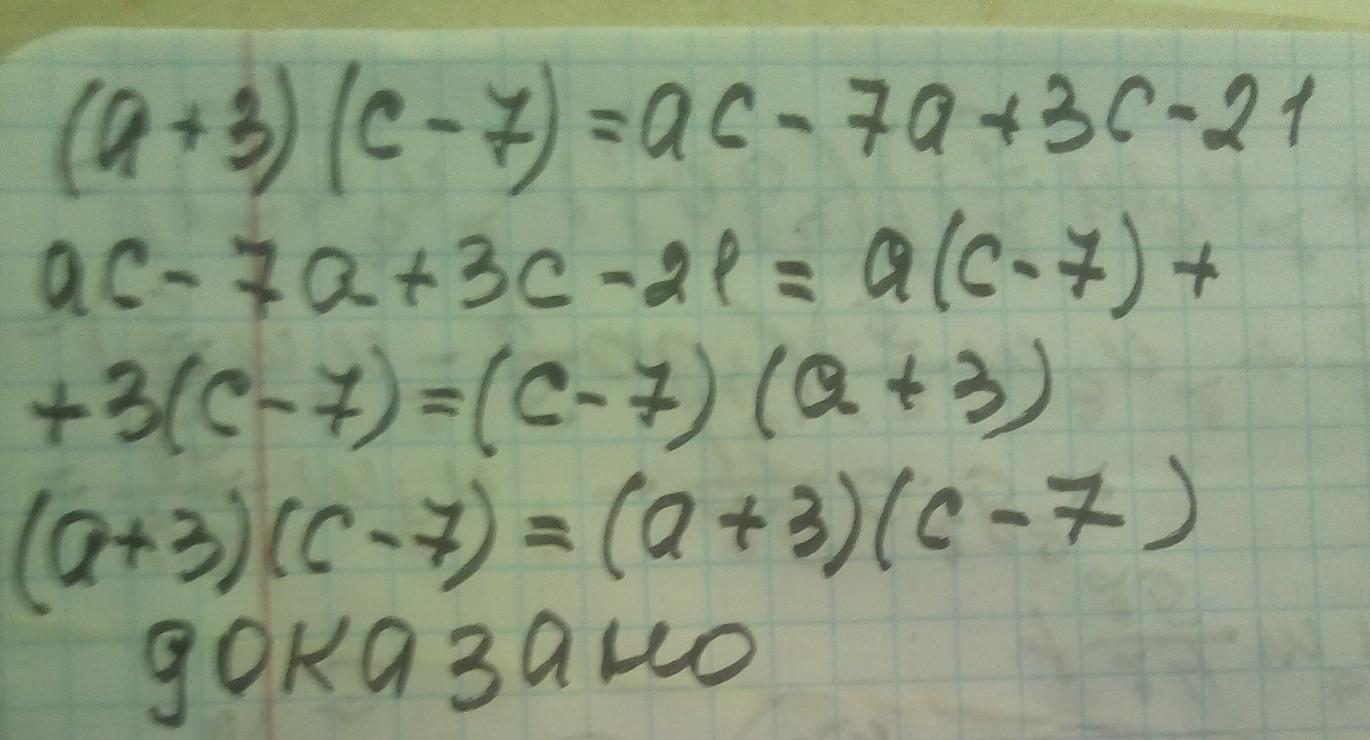 (a+3)(c-7)=ac-7a+3c-21
ac-7a+3c-21=a(c-7)+
+3(c-7)=(c-7)(a+3)
(a+3)(c-7)=(a+3)(c-7)
доказано